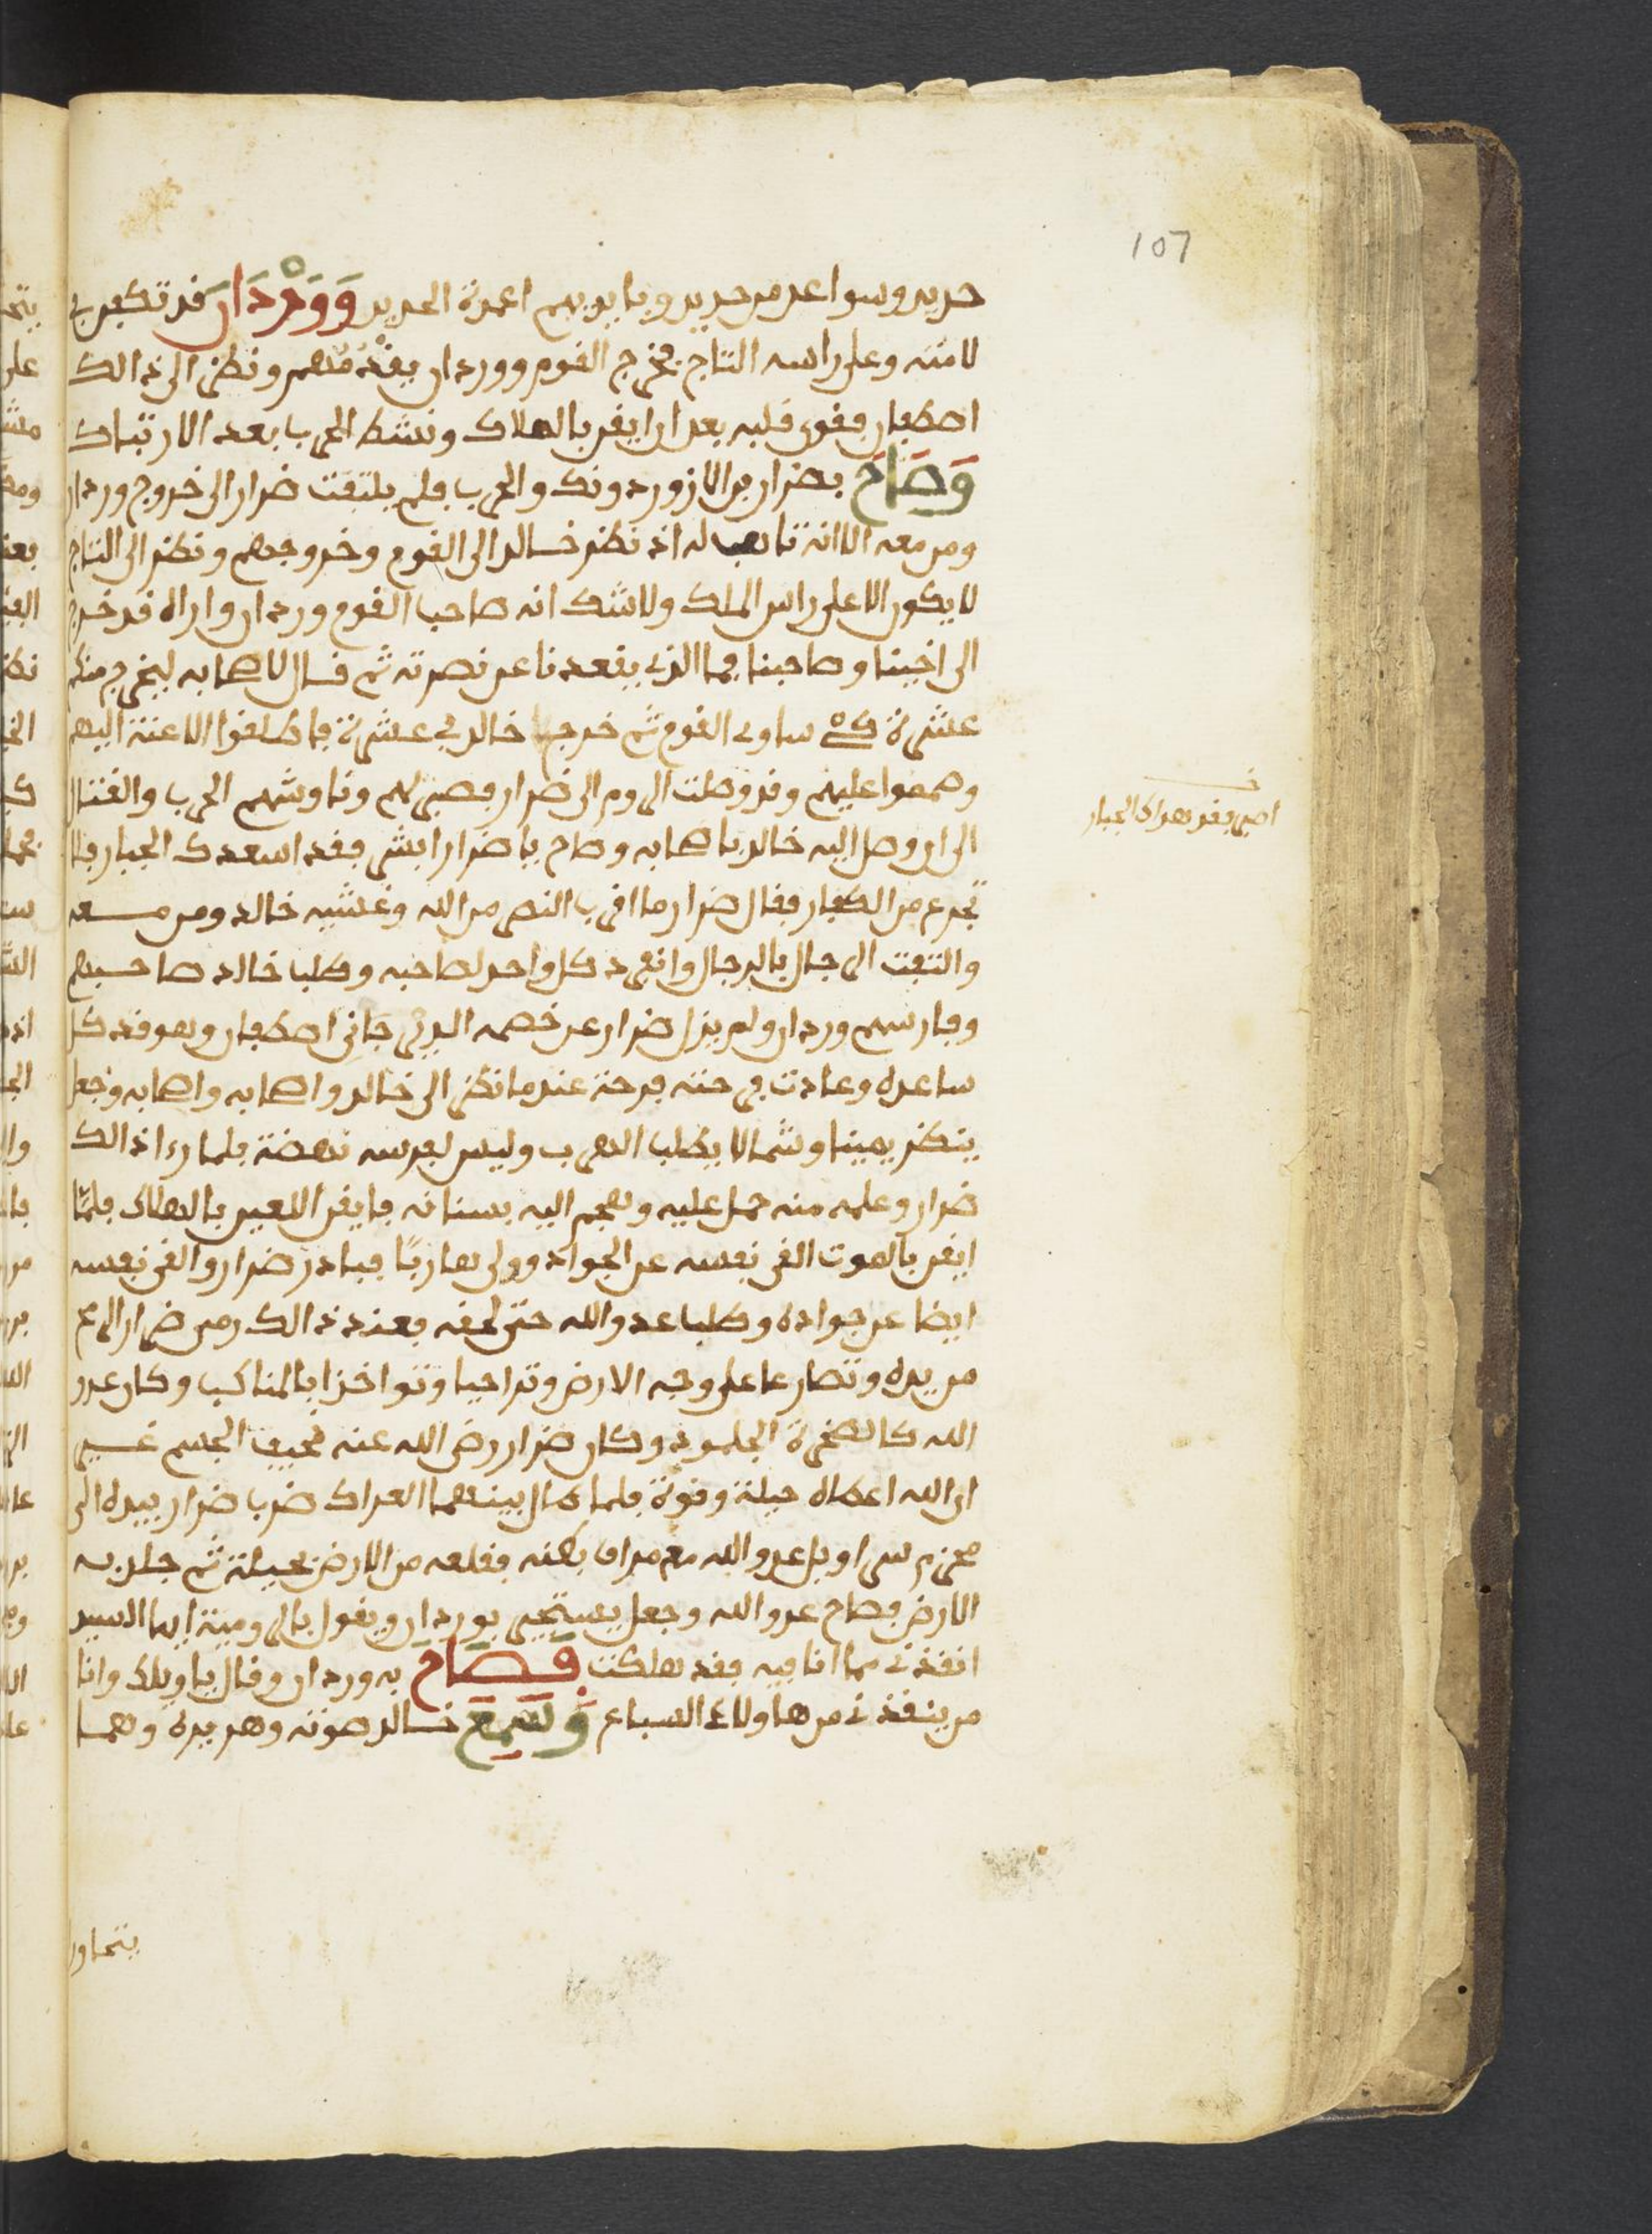 107
حديد وسواعد من حديد وبايديهم اعمدة الحديد وَوَرْدَان قد تكفر في
لامته وعلى راسه التاج فخرج القوم ووردان يقدمهم ونظر الى ذالك
اصطفان فقوى قلبه بعد ان ايقن بالهلاك ونشط للحرب بعد الارتباك
وَصَاحَ بضرار بن الازور دونك والحرب فلم يلتفت ضرار الى خروج وردان
ومن معه الا انه تاهب له اذ نظر خالد الى القوم وخروجهم ونظر الى التاج
لا يكون الا على راس الملك ولا شك انه صاحب القوم وردان واراه قد خرج
الى اخينا وصاحبنا فما الذي يقعدنا عن نصرته ثم قال لاصحابه ليخرج منكم
عشرة كي ساوى القوم ثم خرج خالد في عشرة فاطلقوا الاعنة اليهم
وهمموا عليهم وقد وصلت الروم الى ضرار فصبر لهم وناوشهم الحرب والقتال
الى ان وصل اليه خالد باصحابه وصاح يا ضرار ابشر فقد اسعدك الجبار فلا
تجزع من الكفار فقال ضرار ما اقرب النصر من الله وغشيه خالد ومن معه
والتفت الرجال بالرجال وانفرد كل واحد لصاحبه وطلب خالد صاحبهم
وفارسهم وردان ولم يزل ضرار عن خصمه البدري جانى اصطفان وهو قد كل
ساعده وعادت فرحته قرحة عندما نظر الى خالد واصحابه واصحابه وجعل
ينظر يمينا وشمالا يطلب الهرب وليس لفرسه نهضة فلما رءا ذالك
ضرار وعلمه منه حمل عليه وهجم اليه بسنانه فايقن اللعين بالهلاك فلمّا
ايقن بالموت القى نفسه عن الجواد وولى هاربًا فبادر ضرار والقى نفسه
ايضا عن جواده وطلب عدو الله حتى لحقه فعند ذالك رمى ضرار الرمح
من يده وتصارعا على وجه الارض وتراحبا وتواخذا بالمناكب وكان عدو
الله كالصخرة الجلمود وكان ضرار رضي الله عنه نحيف الجسم غير
ان الله اعطاه حيلة وقوة فلما طال بينهما العراك ضرب ضرار بيده الى
محزم سراويل عدو الله مع مراق بطنه فقلعه من الارض بحيلة ثم جلد به
الارض فصاح عدو الله وجعل يستجير بوردان ويقول بالرومية ايها السيد
انقذني مما انا فيه فقد هلكت فَصَاحَ به وردان وقال يا ويلك وانا
من ينقذني من هاولاء السباع وَسَمِعَ خالد صوته وهديره وهما
اصبر فقد هداك الجبار
يتحاور